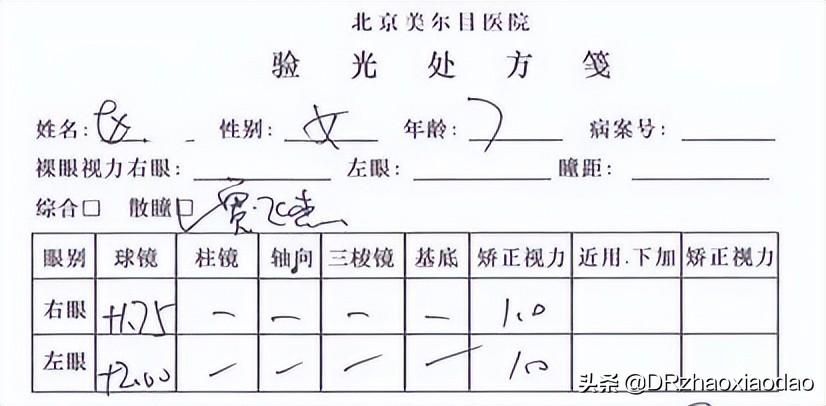 北京美尔目医院
验光处方笺
姓名: 性别: 女 年龄: 7 病案号:
裸眼视力右眼: 左眼: 瞳距:
综合□ 散瞳□✓
眼别 球镜 柱镜 轴向 三棱镜 基底 矫正视力 近用.下加 矫正视力
右眼 +1.75 — — — — 1.0
左眼 +2.00 — — — — 1.0
头条 @DRzhaoxiaodao